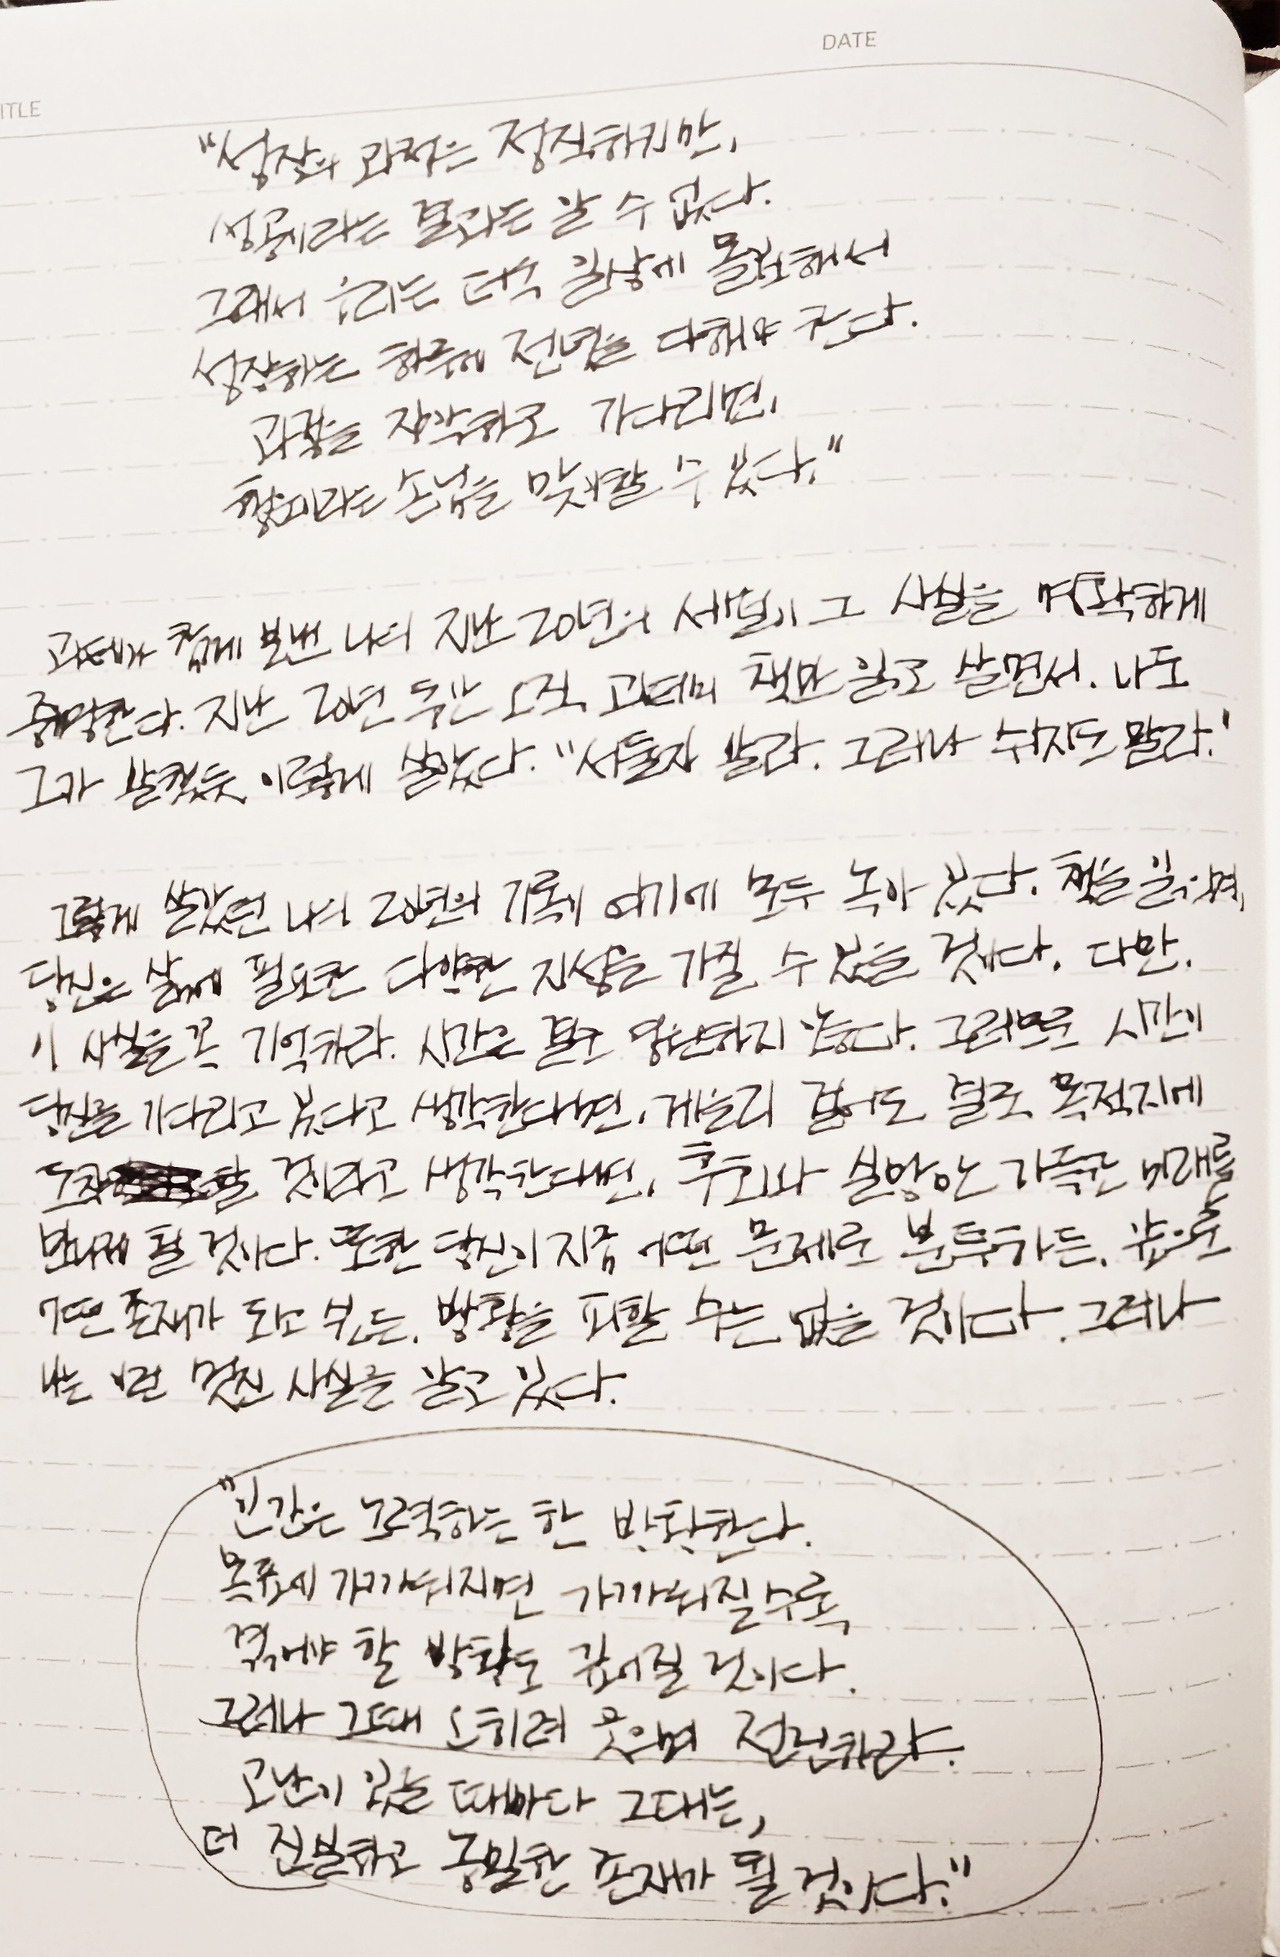 TITLE
DATE
"성장의 과정은 정직하지만,
성공이라는 결과는 알 수 없다.
그래서 우리는 더욱 일상에 몰입해서
성장하는 하루에 전념을 다해야 한다.
과정을 자각하고 기다리면,
행운이라는 손님을 맞이할 수 있다."
괴테와 함께 보낸 나의 지난 20년의 세월이 그 사실을 명확하게
증명한다. 지난 20년 동안 오직 괴테의 책만 읽고 살면서, 나도
그가 말했듯 이렇게 살았다. "서둘지 말라. 그러나 쉬지도 말라."
그렇게 살았던 나의 20년의 기록이 여기에 모두 녹아 있다. 책을 읽으며,
당신은 삶에 필요한 다양한 지성을 가질 수 있을 것이다. 다만,
이 사실을 꼭 기억하라. 시간은 결코 영원하지 않다. 그러므로 시간이
당신을 기다리고 있다고 생각한다면, 게을리 걸어도 결국 목적지에
도착할 것이라고 생각한다면, 후회와 실망만 가득한 미래를
만나게 될 것이다. 또한 당신이 지금 어떤 문제로 분투하든, 앞으로
어떤 존재가 되고 싶든, 방황을 피할 수는 없을 것이다. 그러나
나는 이런 멋진 사실을 알고 있다.
"인간은 노력하는 한 방황한다.
목표에 가까워지면 가까워질수록
겪어야 할 방황도 깊어질 것이다.
그러나 그때 오히려 웃으며 전진하라.
고난이 있을 때마다 그대는,
더 진실하고 농밀한 존재가 될 것이다."